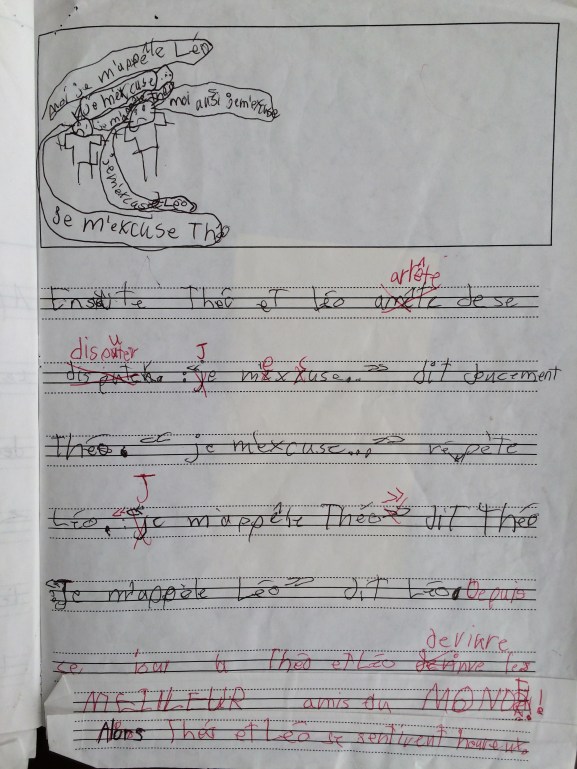 moi je m'appelle Léo
je m'excuse...
moi aussi je m'excuse
je m'excuse Léo
je m'excuse Théo
arrête
Ensuite Théo et Léo arrête de se
disputer J
: « je m'excuse... » dit doucement
Théo. « je m'excuse... » répète
J
Léo. « je m'appèle Théo » dit Théo
« Je m'appèle Léo » dit Léo. Depuis
devinre
ce jour là Théo et Léo devinre les
MEILLEUR amis du MONDE!
Alors Théo et Léo se sentirent heureux.